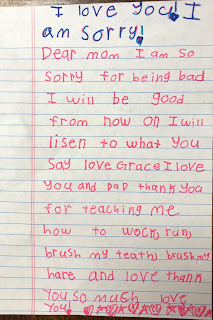 I love you! I
am sorry!
Dear mom I am so
sorry for being bad
I will be good
from now on I will
lisen to what you
say love Grace I love
you and DaD thank you
for teaching me
how to wock, run,
brush my teath, brush my
hare and love thank
you so mush love
you!